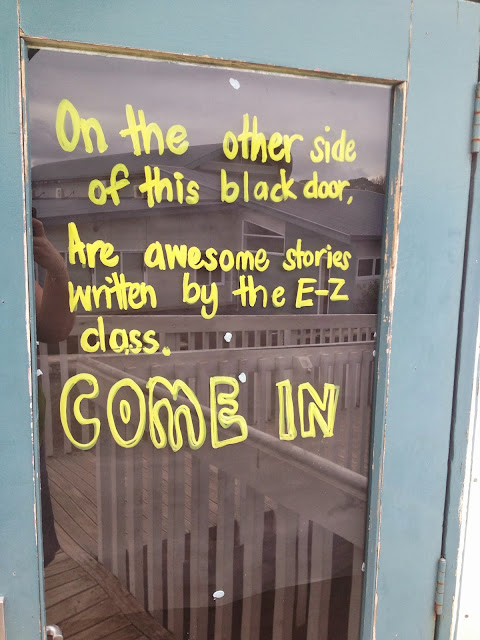 On the other side
of this black door,
Are awesome stories
written by the E-Z
class.
COME IN